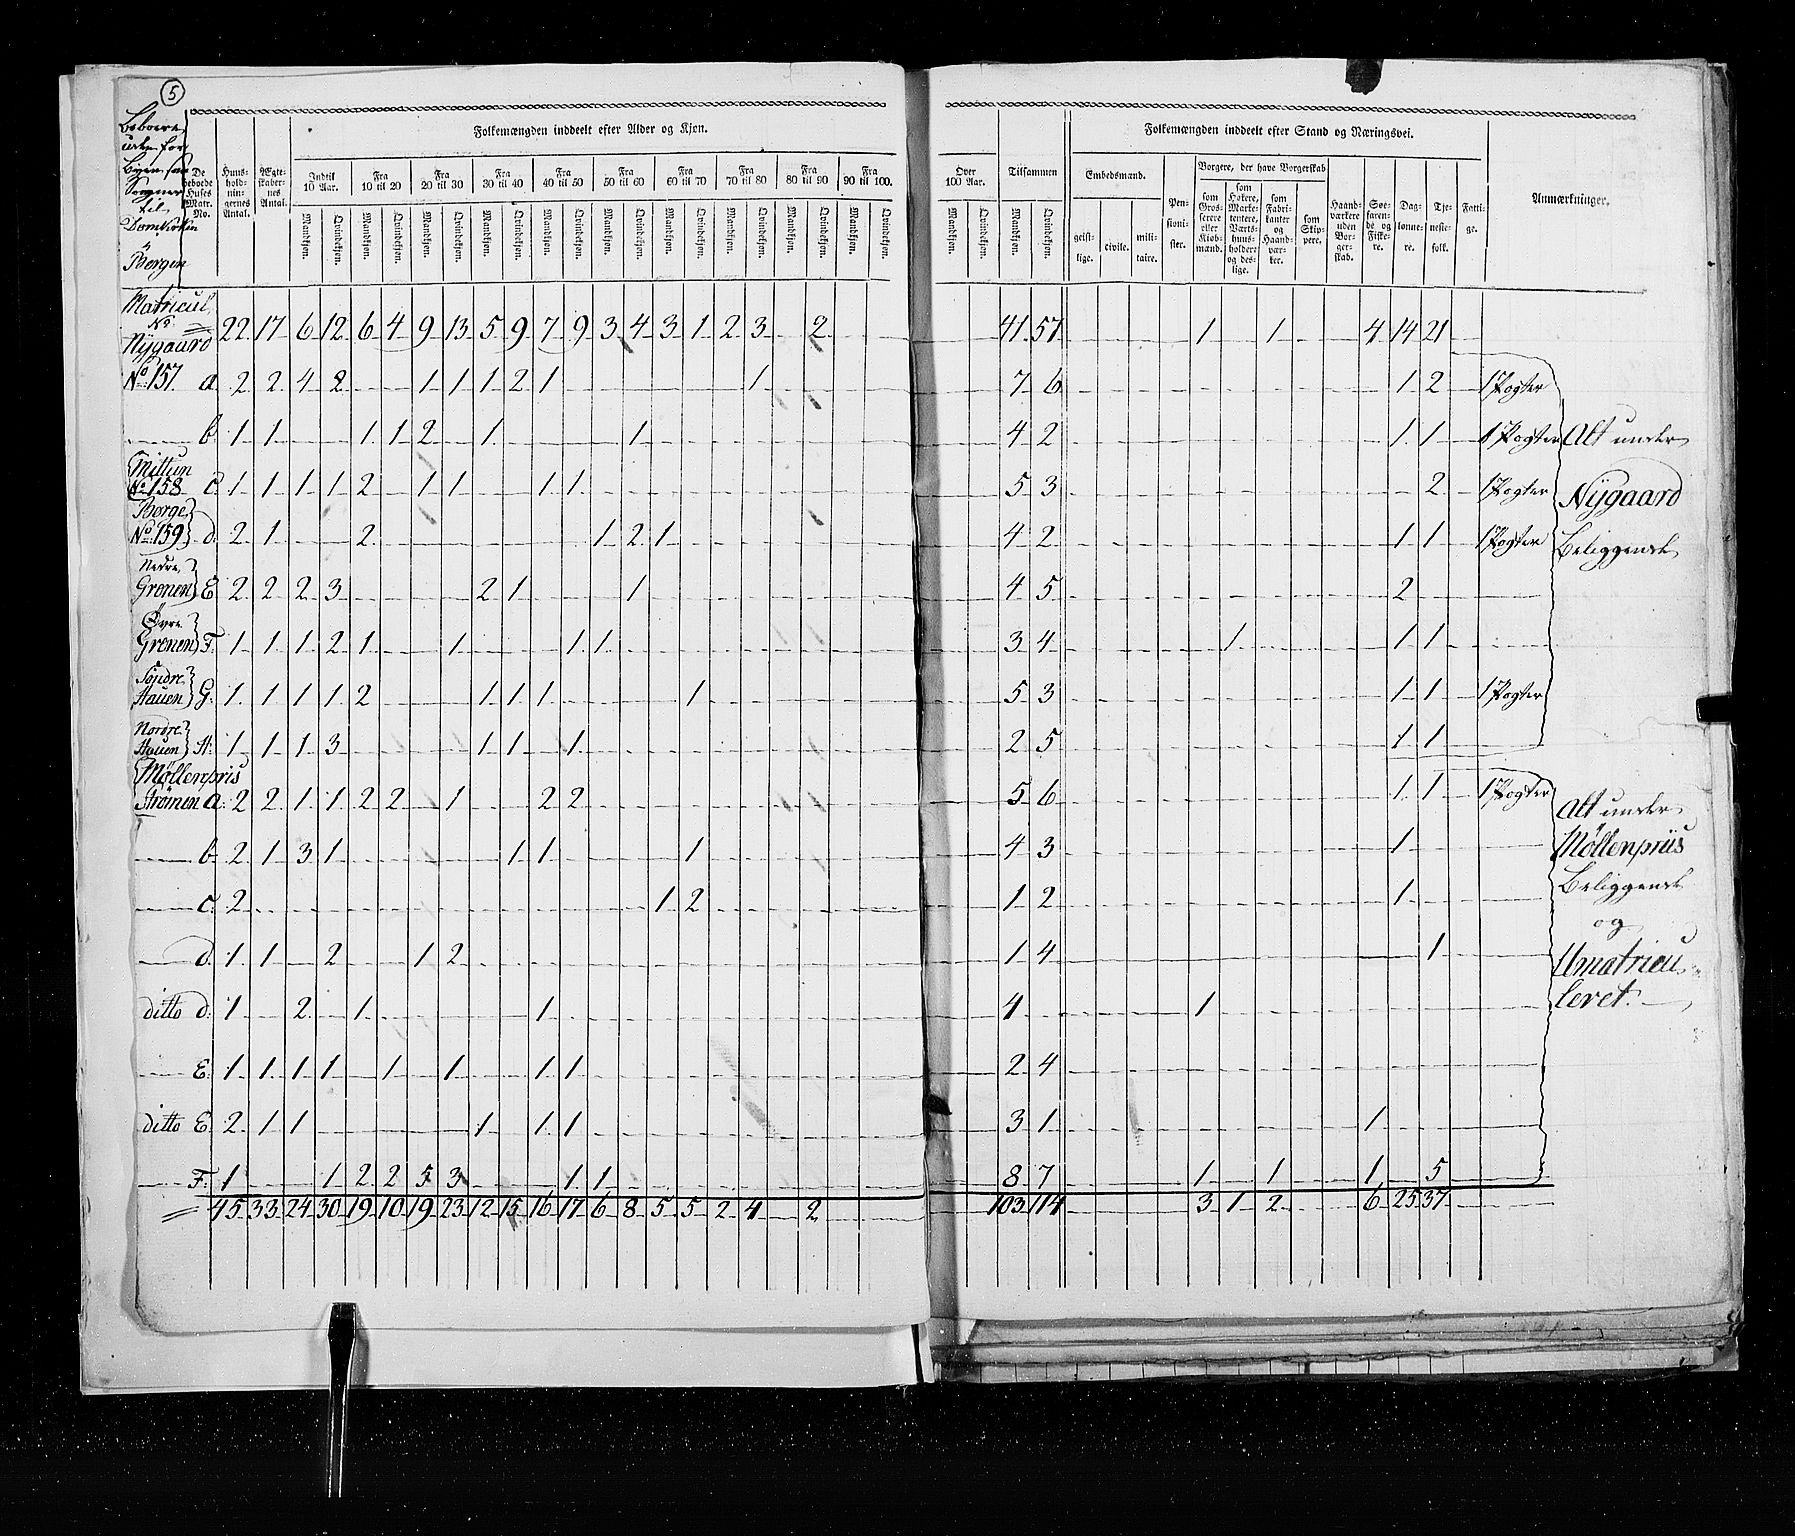 5
Beboere
uden for
Byen som
Sogner
til
Domkirken
i
Bergen
De beboede Huses Matr. No.
Huusholdningernes Antal.
Ægteskabernes Antal.
Folkemængden inddeelt efter Alder og Kjøn.
Indtil 10 Aar. Fra 10 til 20 Fra 20 til 30 Fra 30 til 40 Fra 40 til 50 Fra 50 til 60 Fra 60 til 70 Fra 70 til 80 Fra 80 til 90 Fra 90 til 100. Over 100 Aar. Tilsammen
Mandkjøn. Qvindekjøn. Mandkjøn. Qvindekjøn. Mandkjøn. Qvindekjøn. Mandkjøn. Qvindekjøn. Mandkjøn. Qvindekjøn. Mandkjøn. Qvindekjøn. Mandkjøn. Qvindekjøn. Mandkjøn. Qvindekjøn. Mandkjøn. Qvindekjøn. Mandkjøn. Qvindekjøn. Mandkjøn. Qvindekjøn. Mandkjøn. Qvindekjøn.
Folkemængden inddeelt efter Stand og Næringsvei.
Embedsmænd. Pensionister. Borgere, der have Borgerskab
geistlige. civile. militaire.
som Grosserere eller Kjøbmænd. som Høkere, Marketentere, Værtshuusholdere og deslige. som Fabrikanter og Haandværkere. som Skippere.
Haandværkere uden Borgerskab. Søefarende og Fiskere. Daglønnere. Tjenestefolk. Fattige.
Anmærkninger.
Matricul
No
Nÿgaard 22 17 6 12 6 4 9 13 5 9 7 9 3 4 3 1 2 3 2 41 57 1 1 4 14 21
No 157 a. 2 2 4 2 1 1 1 2 1 1 7 6 1 2 1 Pogter
b. 1 1 1 1 2 1 1 4 2 1 1 1 Pogter Alt under
Mittun
No 158 c. 1 1 1 1 2 1 1 1 1 5 3 2 1 Pogter Nÿgaard
Borge
No 159 d. 2 1 2 1 2 1 4 2 1 1 1 Pogter Beliggende
Nedre
Gronen E 2 2 2 3 2 1 1 4 5 2
Øvre
Gronen F. 1 1 1 2 1 1 1 1 3 4 1 1 1
Søndre
Hauen G. 1 1 1 1 2 1 1 1 1 5 3 1 1 1 Pogter
Nordre
Hauen H. 1 1 1 3 1 1 1 2 5 1 1
Møllenpris
Strömen a. 2 2 1 1 2 2 1 2 2 5 6 1 1 1 Pogter Alt under
b. 2 1 3 1 1 1 1 4 3 1 Møllenpriis
c. 2 1 2 1 2 1 Beliggende
og
d. 1 1 2 1 2 1 4 1 Umatricu
ditto d. 1 2 1 1 4 1 leret.
E. 1 1 1 1 1 1 1 1 2 4
ditto E. 2 1 1 1 1 1 3 1 1
F. 1 1 2 2 5 3 1 1 8 7 1 1 1 5
45 33 24 30 19 10 19 23 12 15 16 17 6 8 5 5 2 4 2 103 114 3 1 2 6 25 37